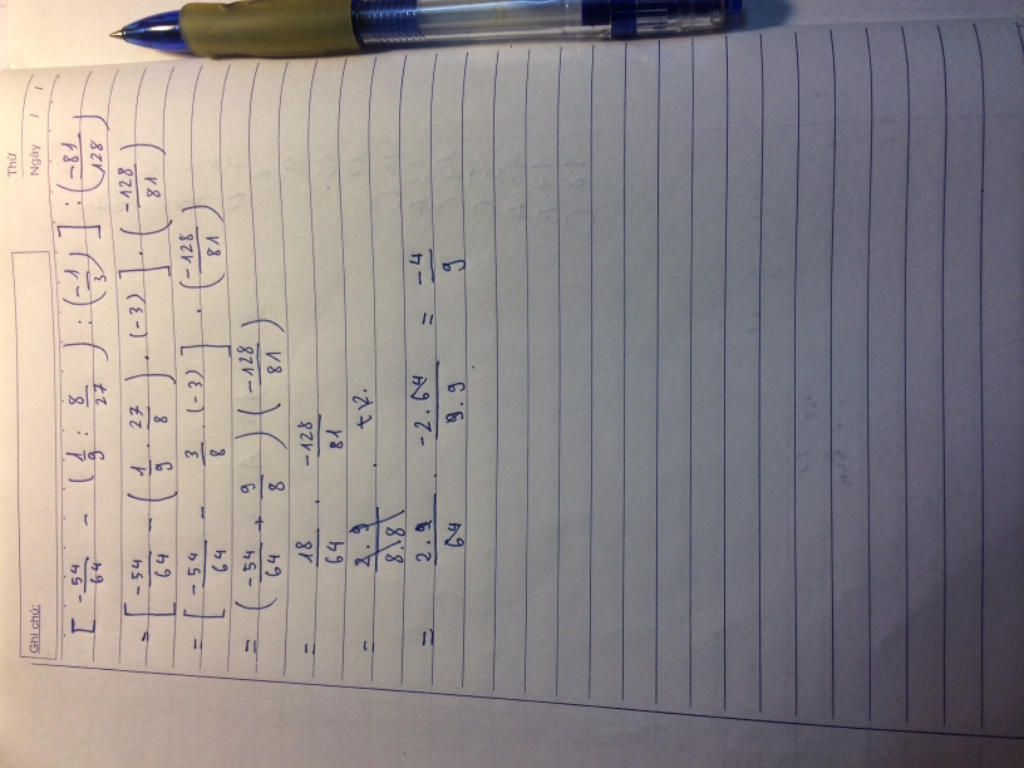 Thứ
Ghi chú: Ngày / /
[ -54/64 - ( 1/9 : 8/27 ) : ( -1/3 ) ] : ( -81/128 )
= [ -54/64 - ( 1/9 . 27/8 ) . (-3) ] . ( -128/81 )
= [ -54/64 - 3/8 . (-3) ] . ( -128/81 )
= ( -54/64 + 9/8 ) ( -128/81 )
= 18/64 . -128/81
=
= 2.9/64 . -2.64/9.9 = -4/9